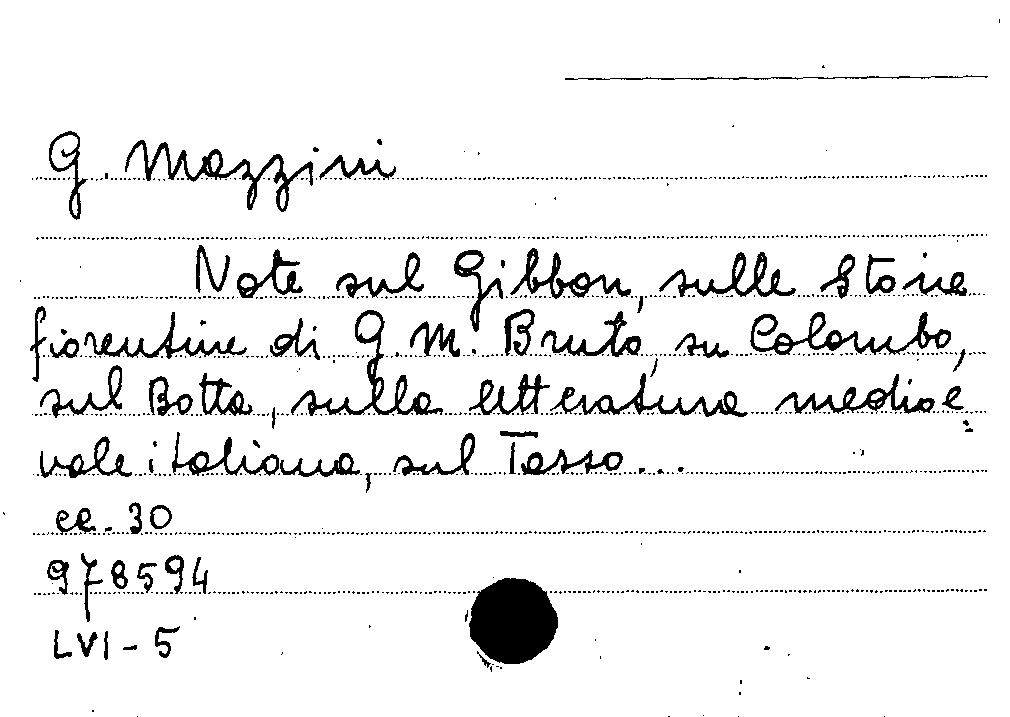 G. Mazzini
Note sul Gibbon, sulle Storie
fiorentine di G. M. Bruto, su Colombo,
sul Botta, sulla letteratura medioe=
vale italiana, sul Tasso...
cc. 30
978594
LVI - 5